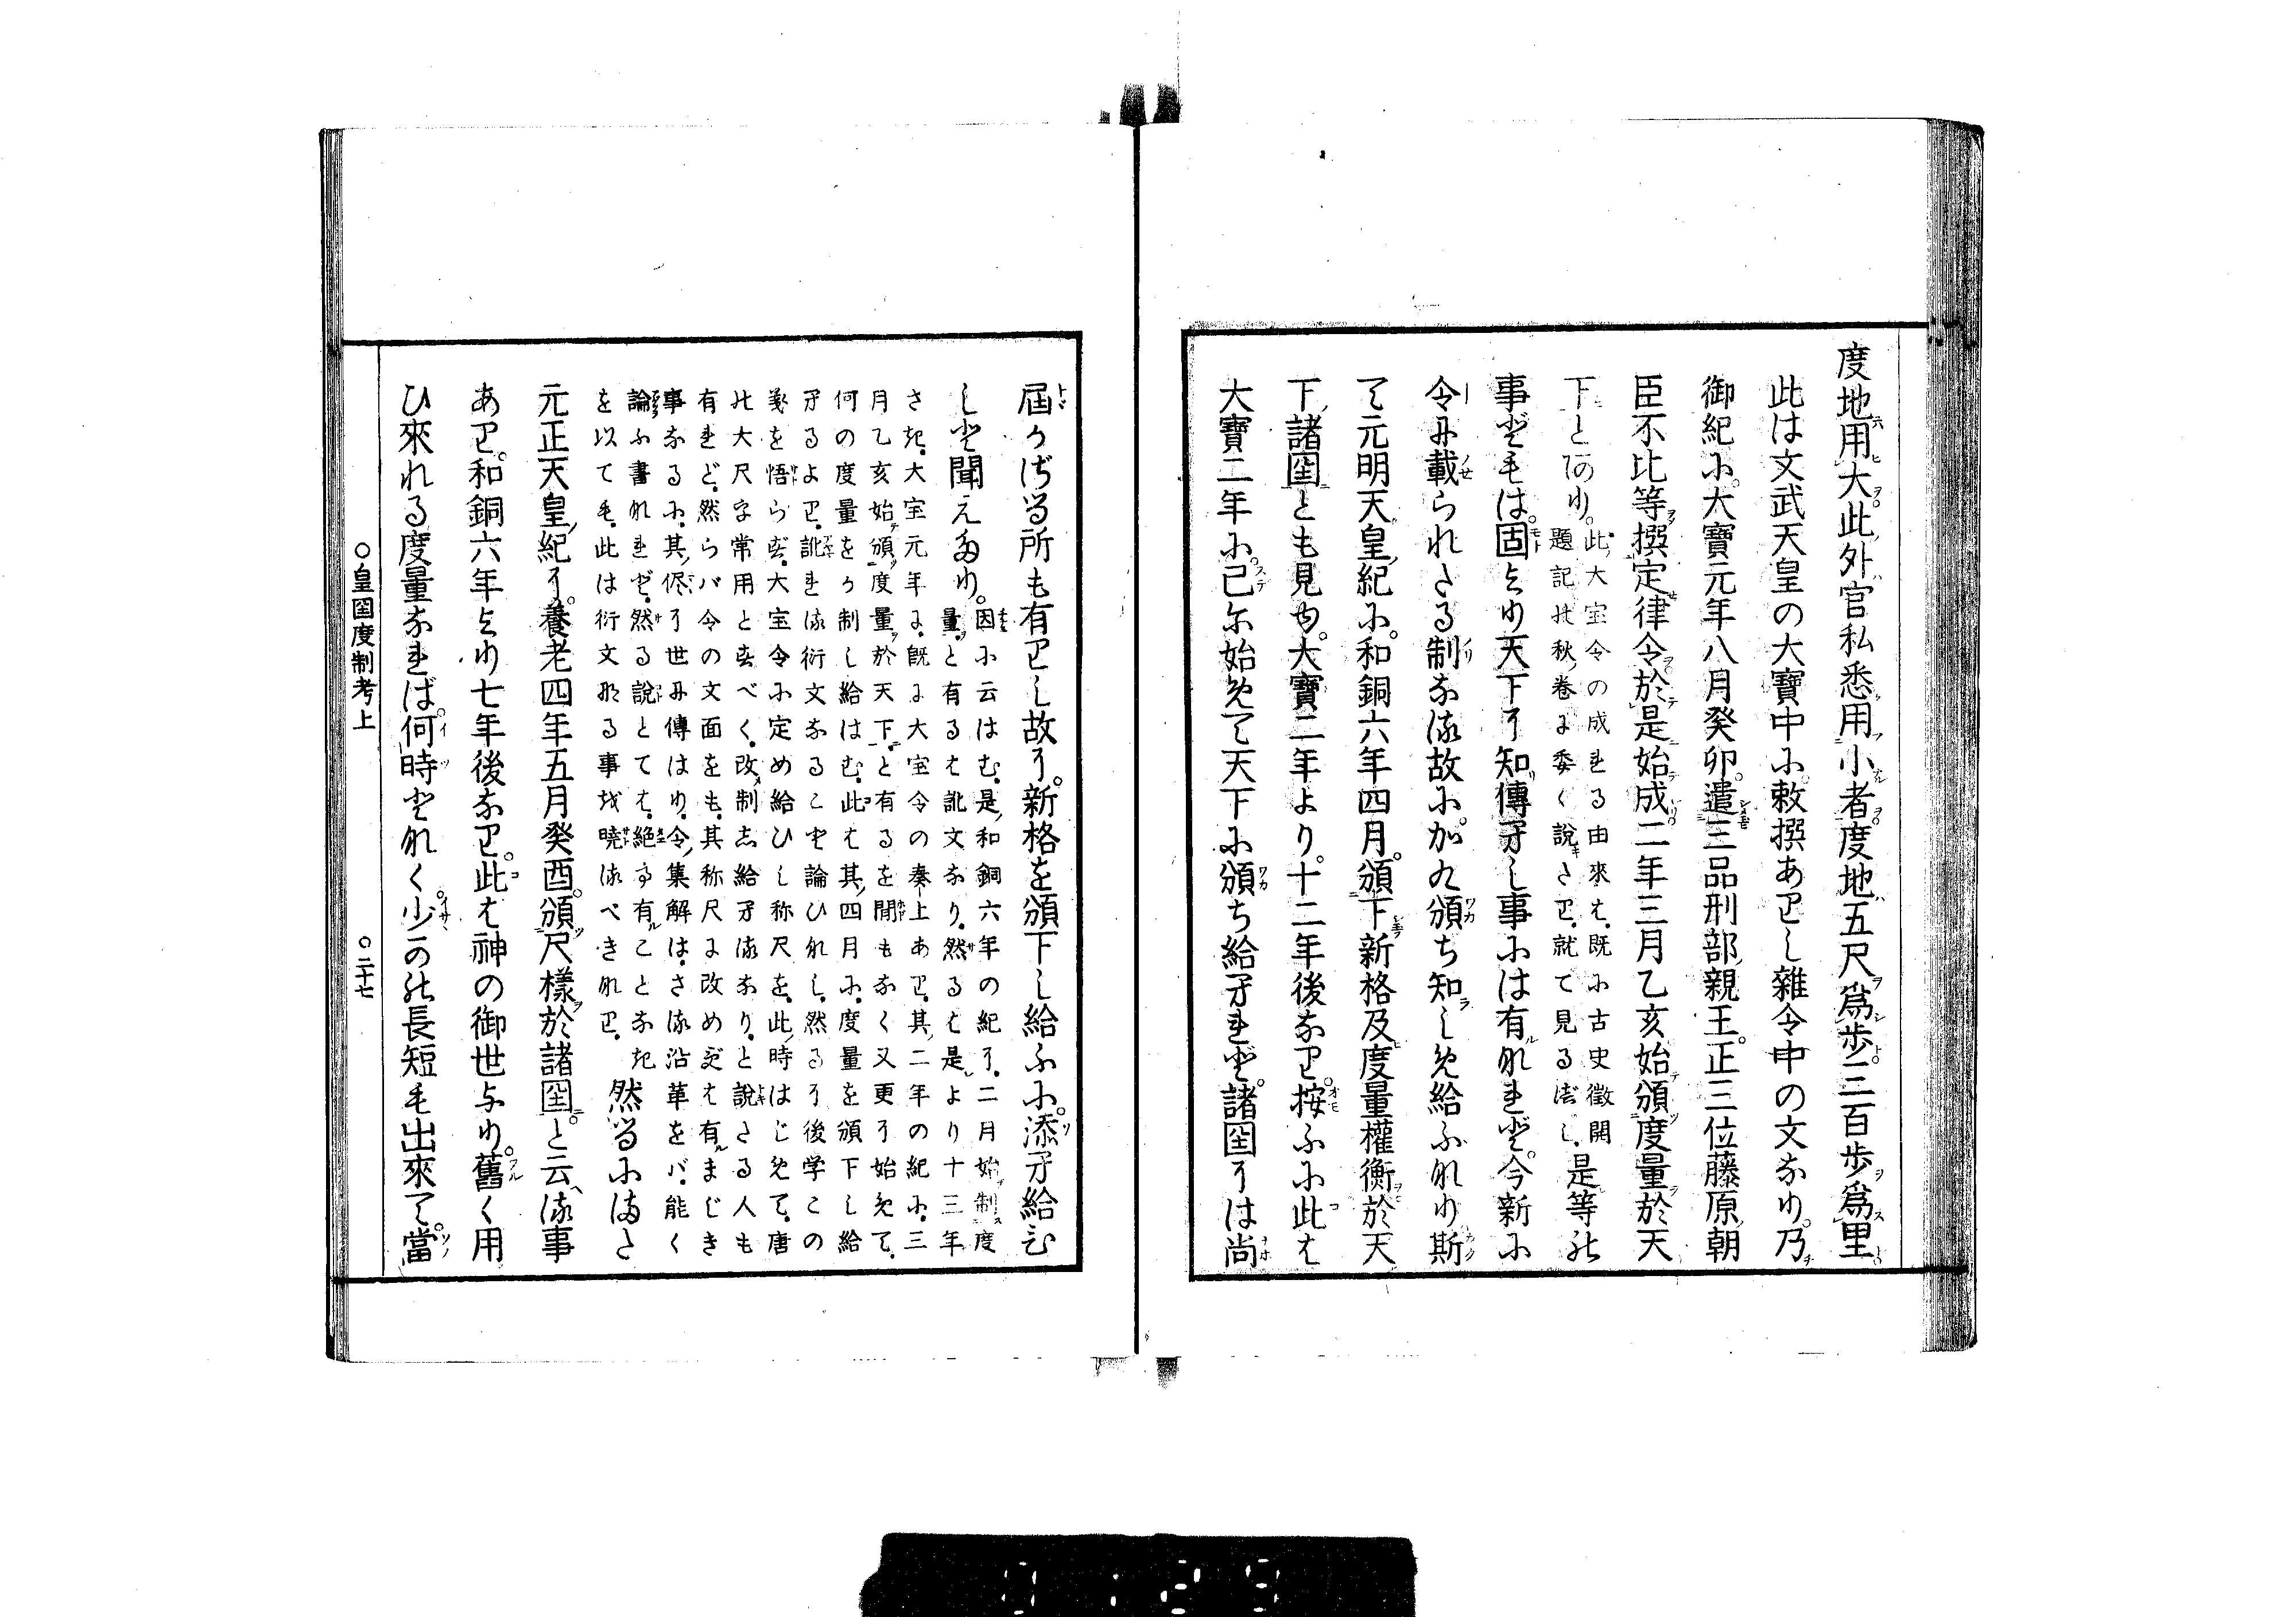 度地用大此外官私悉用小者度地五尺爲歩三百歩爲里
此は文武天皇の大寶中に敕撰ありし雜令中の文なり。乃
御紀に。大寶元年八月癸卯。遣三品刑部親王。正三位藤原朝
臣不比等撰定律令於是始成二年三月乙亥始頒度量於天
下とあり。此大宝令の成れる由來は、既に古史徴開
題記の秋卷に委く說きたり、就て見るべし、是等の
事ども は。固より天下に知傳へし事には有れど。今新に
令に載られたる制なる故に。かく頒ち知しめ給ふなり斯
て元明天皇紀に。和銅六年四月。頒下新格及度量權衡於天
下諸国とも見ゆ。大寶二年より。十二年後なり。按ふに此は
大寶二年に。已に始めて天下に頒ち給へれど。諸国には尚
屆かざる所も有りし故に。新格を頒下し給ふに。添へ給ひ
しと聞えたり。因に云はむ、是、和銅六年の紀に、二月始制度
量、と有るは訛文なり、然るは是より十三年
さき、大宝元年に、既に大宝令の奏上あり、其二年の紀に、三
月乙亥始頒度量於天下、と有るを聞もなく又更に始めて、
何の度量をか制し給はむ、此は其四月に、度量を頒下し給
へるより、訛れる衍文なることを論ひなし、然るに後学この
義を悟らず、大宝令に定め給ひし称尺を、此時はじめて、唐
の大尺字常用とすべく、改制し給へるなり、と說たる人も
有れど、然らバ令の文面をも、其称尺に改めずは有まじき
事なるに、其侭に世に傳はり、令集解は、さる沿革をバ、能く
論ふ書なれど、然る說とては、絶て有ることなき
を以ても、此は衍文なる事を曉るべきなり、然るにまた
元正天皇紀に。養老四年五月癸酉。頒尺樣於諸国。と云る事
あり。和銅六年より七年後なり。此は神の御世より。舊く用
ひ來れる度量なれば。何時となく。少かの長短も出來て。當
○皇国度制考上 ○二十七